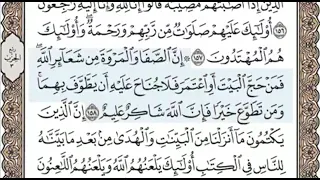 الَّذِينَ إِذَا أَصَابَتْهُم مُّصِيبَةٌ قَالُوا إِنَّا لِلَّهِ وَإِنَّا إِلَيْهِ رَاجِعُونَ
١٥٦ أُولَٰئِكَ عَلَيْهِمْ صَلَوَاتٌ مِّن رَّبِّهِمْ وَرَحْمَةٌ ۖ وَأُولَٰئِكَ
هُمُ الْمُهْتَدُونَ ١٥٧ إِنَّ الصَّفَا وَالْمَرْوَةَ مِن شَعَائِرِ اللَّهِ ۖ
فَمَنْ حَجَّ الْبَيْتَ أَوِ اعْتَمَرَ فَلَا جُنَاحَ عَلَيْهِ أَن يَطَّوَّفَ بِهِمَا ۚ
وَمَن تَطَوَّعَ خَيْرًا فَإِنَّ اللَّهَ شَاكِرٌ عَلِيمٌ ١٥٨ إِنَّ الَّذِينَ
يَكْتُمُونَ مَا أَنزَلْنَا مِنَ الْبَيِّنَاتِ وَالْهُدَىٰ مِن بَعْدِ مَا بَيَّنَّاهُ
لِلنَّاسِ فِي الْكِتَابِ ۙ أُولَٰئِكَ يَلْعَنُهُمُ اللَّهُ وَيَلْعَنُهُمُ اللَّاعِنُونَ